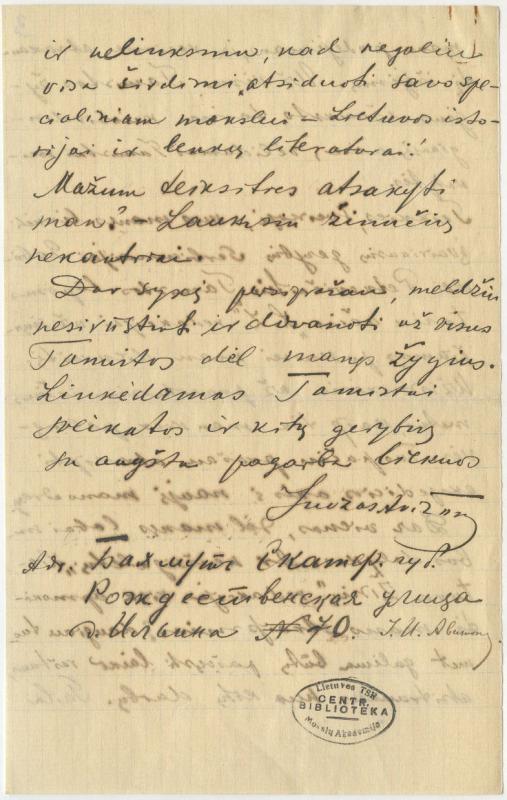 ir nelinksma, kad negaliu
visa širdimi atsiduoti savo spe-
cialiniam mokslui – Lietuvos isto-
rijai ir lenkų literaturai!
Mažum teiksitės atsakyti
man? – Lauksiu žinučių
nekantriai.
Dar sykį persiprašau, meldžiu
nesirūstinti ir dovanoti už visus
Tamistos dėl manęs žygius.
Linkėdamas Tamistai
sveikatos ir kitų gerybių
su augšta pagarba liekuos
Juozas
Adr. Бахмутъ Екатер. губ.
Рождественская улица
д. Ильина № 70. I. И.
Lietuvos TSR
CENTR.
BIBLIOTEKA
Mokslų Akademija